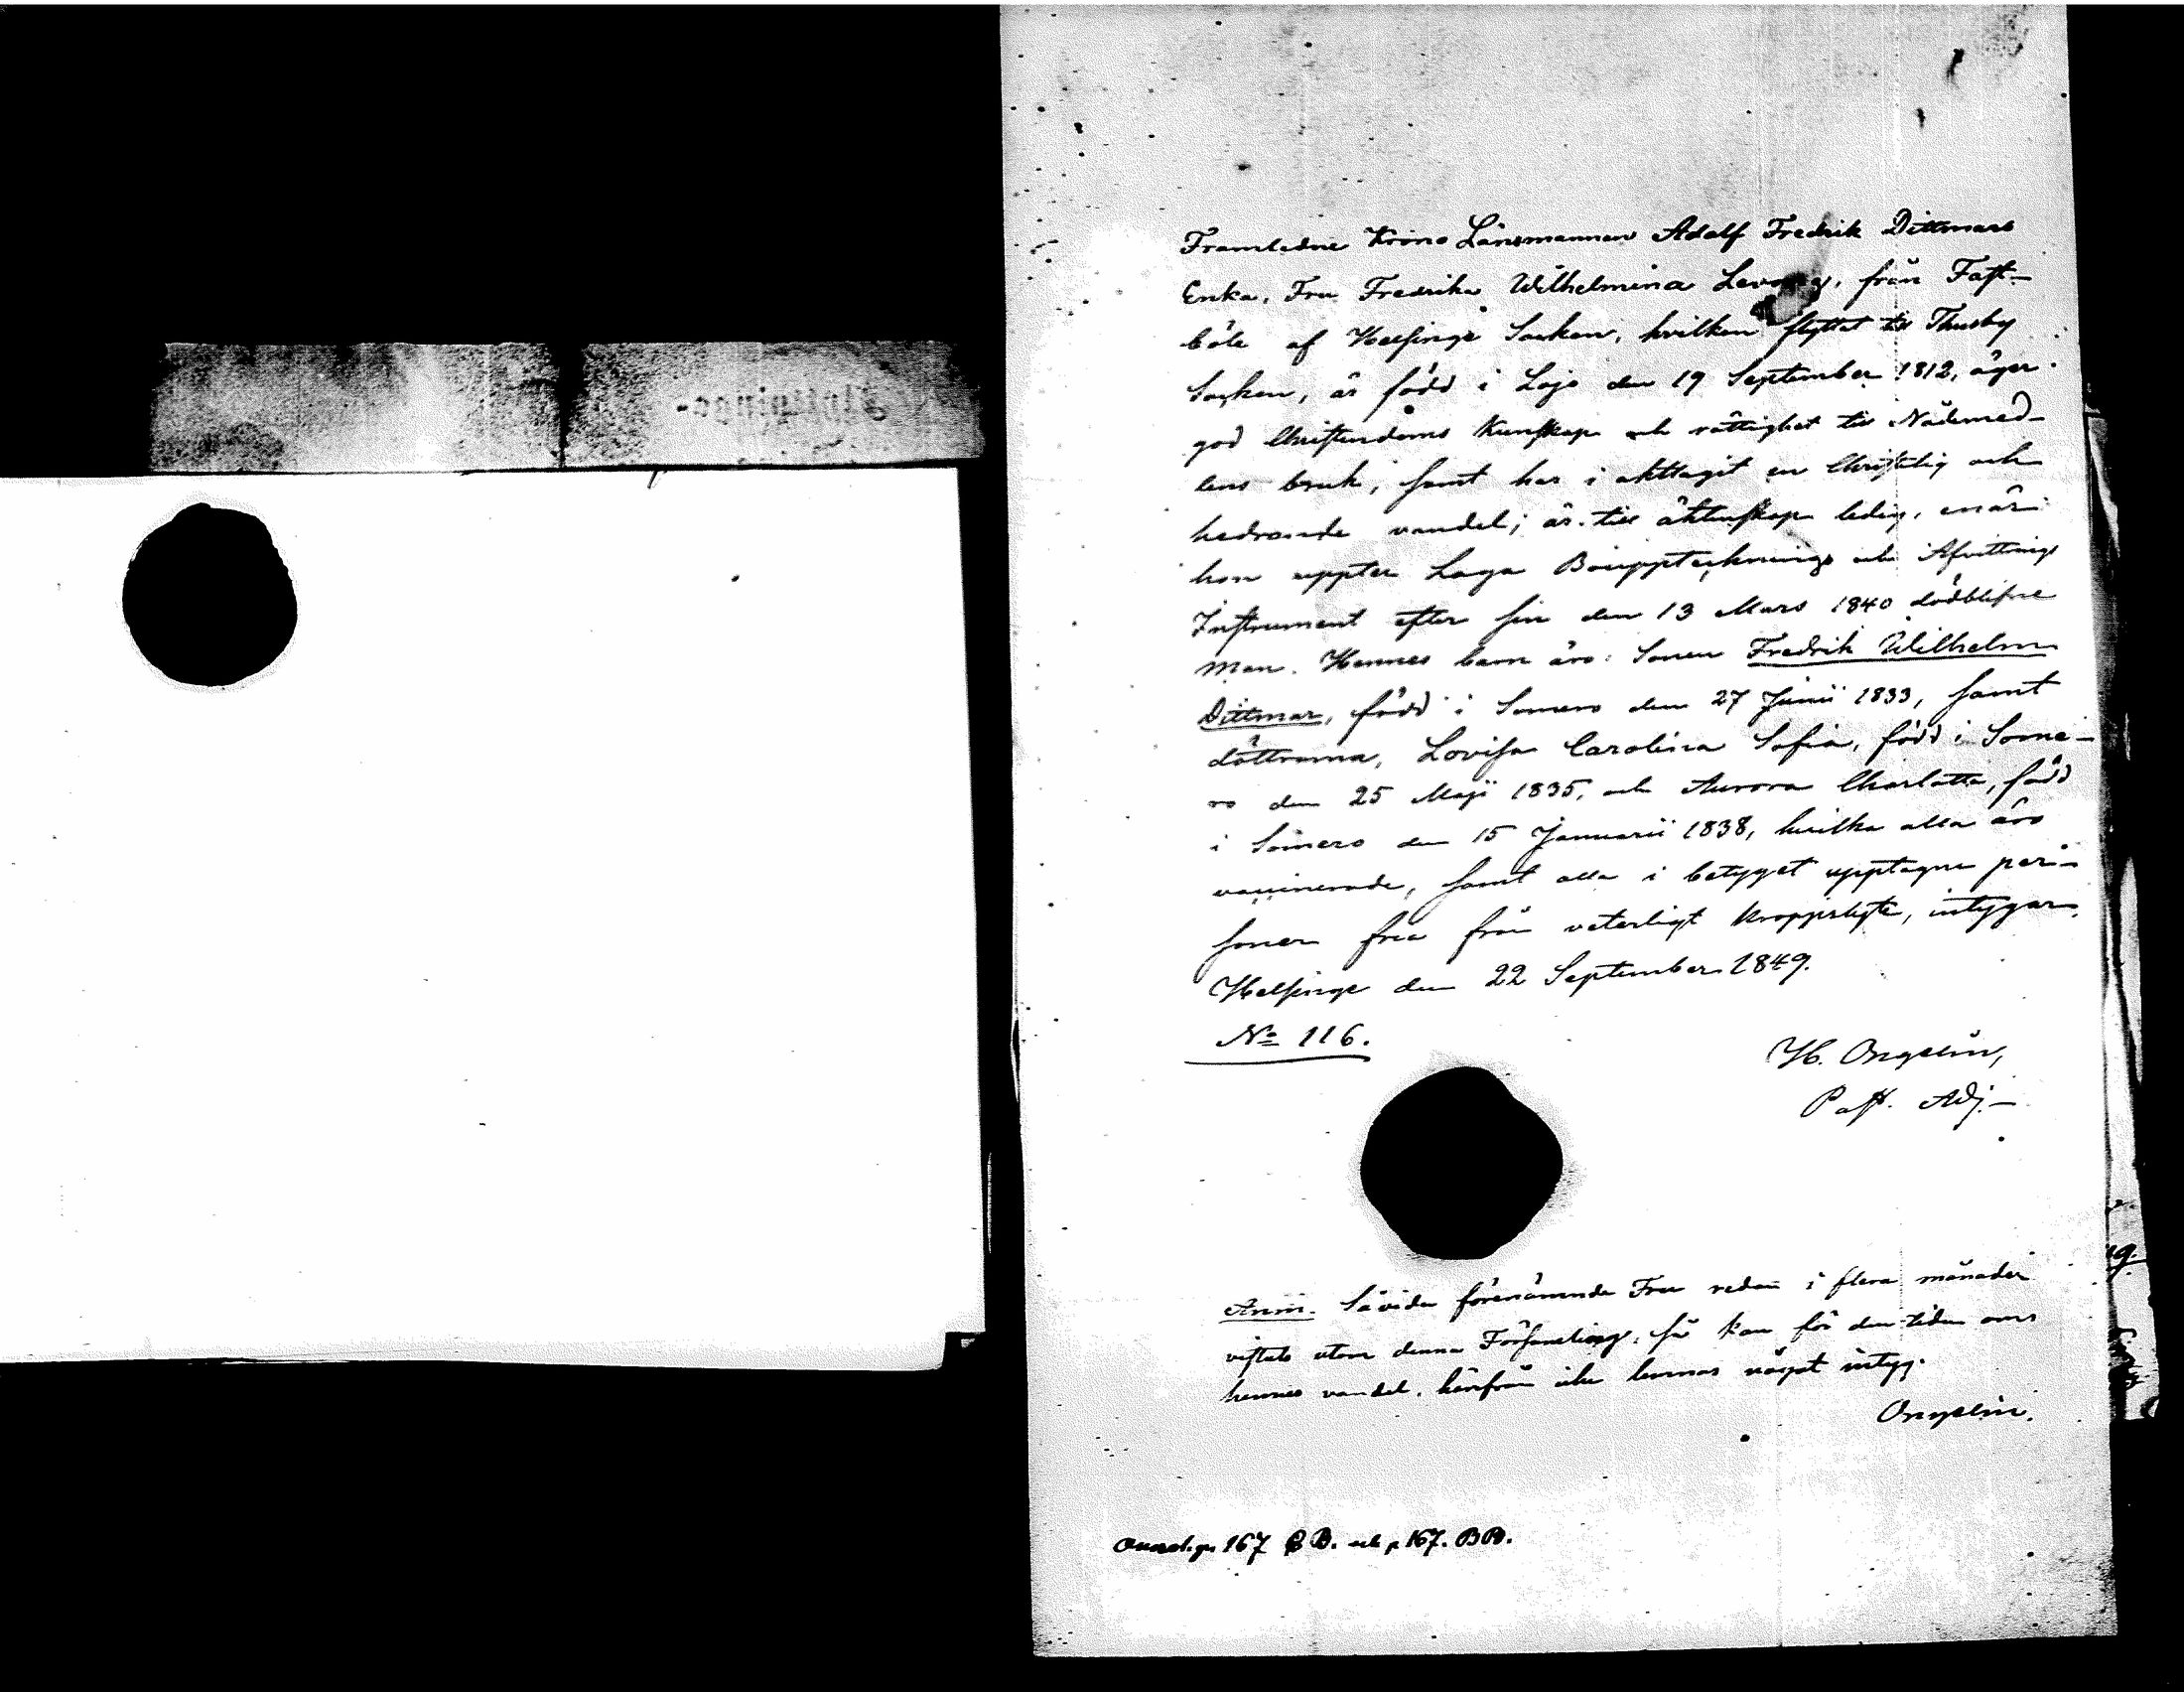 Flyttnings-
Framledne Krono Länsmannen Adolf Fredrik Dittmars
Enka, Fru Fredrika Wilhelmina, från Fast-
böle af Helsinge Socken, hvilken flyttat till Thusby
Socken, är född i Lojo den 19 September 1812, äger
god Christendoms Kunskap och rättighet till Nådemed-
lens bruk, samt har i akttagit en Christelig och
hedrande vandel; är till äktenskap ledig, enär
hon uppter Laga Bouppteckning och Afvittrings
Instrument efter sin den 13 Mars 1840 dödblifne
Man. Hennes barn äro: Sonen Fredrik Wilhelm
Dittmar, född i Somero den 27 Junii 1833, samt
döttrarna, Lovisa Carolina Sofia, född i Some-
ro den 25 Maji 1835, och Aurora Charlotta, född
i Somero den 15 Januarii 1838, hvilka alla äro
vaccinerade, samt alla i betyget upptagne per-
soner fria från veterligt kroppslyte, intygar.
Helsinge den 22 September 1849.
No 116.
H. Ongelin,
Past. Adj.
Anm. Såvida förenämnde Fru redan i flera månader
vistats utom denna Församling, så kan för den tiden om
hennes vandel, härifrån icke lemnas något intyg.
Ongelin.
167 B. och p 167. BB.